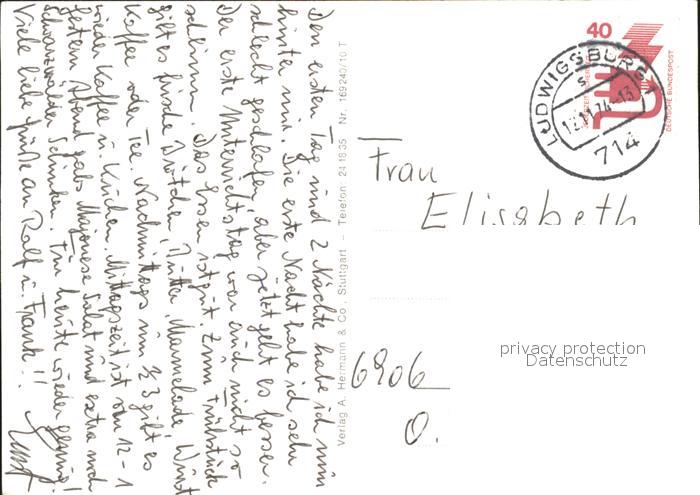 Den ersten Tag und 2 Nächte habe ich nun
hinter mir. Die erste Nacht habe ich sehr
schlecht geschlafen, aber jetzt geht es besser.
Der erste Unterrichtstag war auch nicht so
schlimm. Das Essen ist gut. Zum Frühstück
gibt es frische Brötchen, Butter, Marmelade, Wurst
Kaffee oder Tee. Nachmittags um ½ 3 gibt es
wieder Kaffee u. Kuchen. Mittagszeit ist von 12 - 1
Gestern Abend gabs Majonese Salat und extra noch
Schwarzwälder Schinken. Für heute wieder genug!
Viele liebe Grüße an Ralf u. Frank!!
Verlag A. Hermann & Co., Stuttgart – Telefon: 24 18 35 Nr.: 169 240/10 T
40
DEUTSCHE BUNDESPOST
LUDWIGSBURG 1
12.11.74-13
714
Frau
Elisabeth
6906
O.
privacy protection
Datenschutz